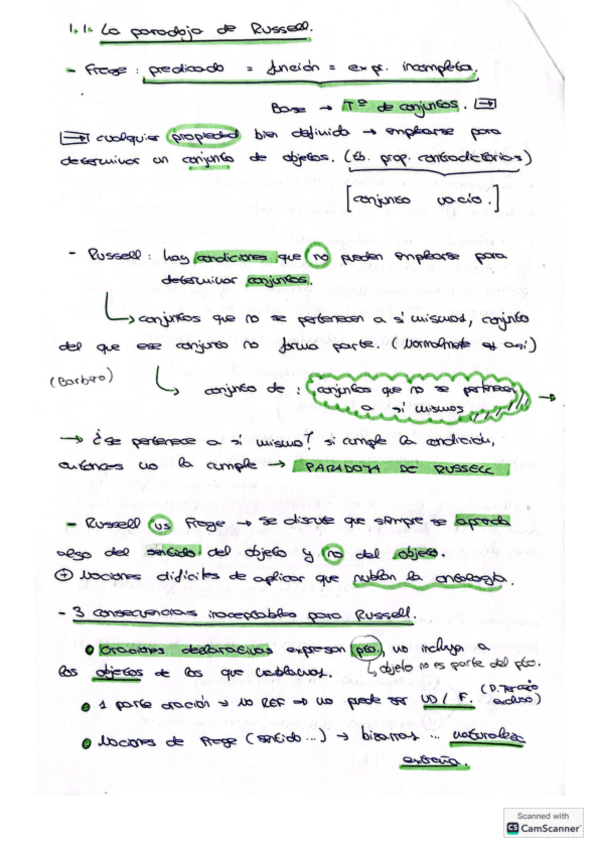 1.1. La paradoja de Russell.
- Frege : predicado = función = exp. incompleta.
Base → Tª de conjuntos.
cualquier propiedad bien definida → emplearse para
determinar un conjunto de objetos. (Ej. prop. contradictorias)
[conjunto vacío.]
- Russell : hay condiciones que no pueden emplearse para
determinar conjuntos.
conjuntos que no se pertenecen a sí mismos, conjunto
del que ese conjunto no forma parte. (Normalmente es así)
(Barbero)
conjunto de : conjuntos que no se pertenecen →
a sí mismos
→ ¿se pertenece a sí mismo? si cumple la condición,
entonces no la cumple → PARADOJA DE RUSSELL
- Russell vs Frege → se discute que siempre se aprenda
algo del sentido del objeto y no del objeto.
+ Nociones difíciles de aplicar que nublan la ontología.
- 3 consecuencias inaceptables para Russell.
oraciones declarativas expresan pto, no incluya a
los objetos de los que hablamos. objeto no es parte del pto.
1 parte oración → no REF → no puede ser VD / F. (P. Tercero
excluso)
Nociones de Frege (sentido ...) → bizarras ... naturaleza
extraña.
Scanned with
CS CamScanner